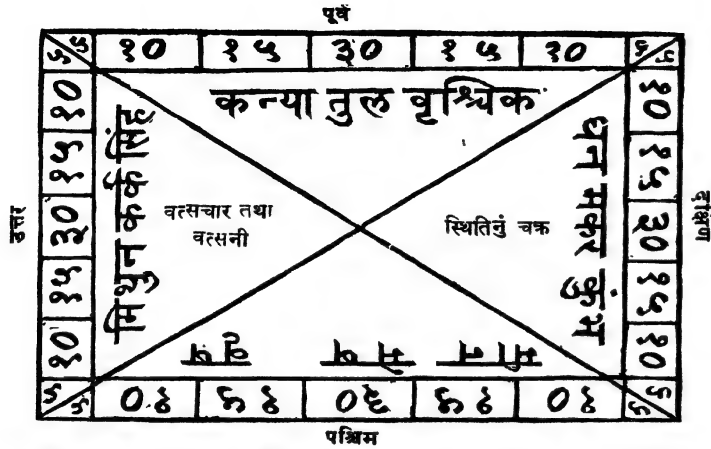 पूर्व
५ ५ १० १५ ३० १५ १० ५ ५
कन्या तुल वृश्चिक
उत्तर
१० १५ ३० १५ १०
मिथुन कर्क सिंह
वत्सचार तथा
वत्सनी
स्थितिनुं चक्र
धन मकर कुंभ
१० १५ ३० १५ १०
दक्षिण
मीन मेष वृष
५ ५ १० १५ ३० १५ १० ५ ५
पश्चिम